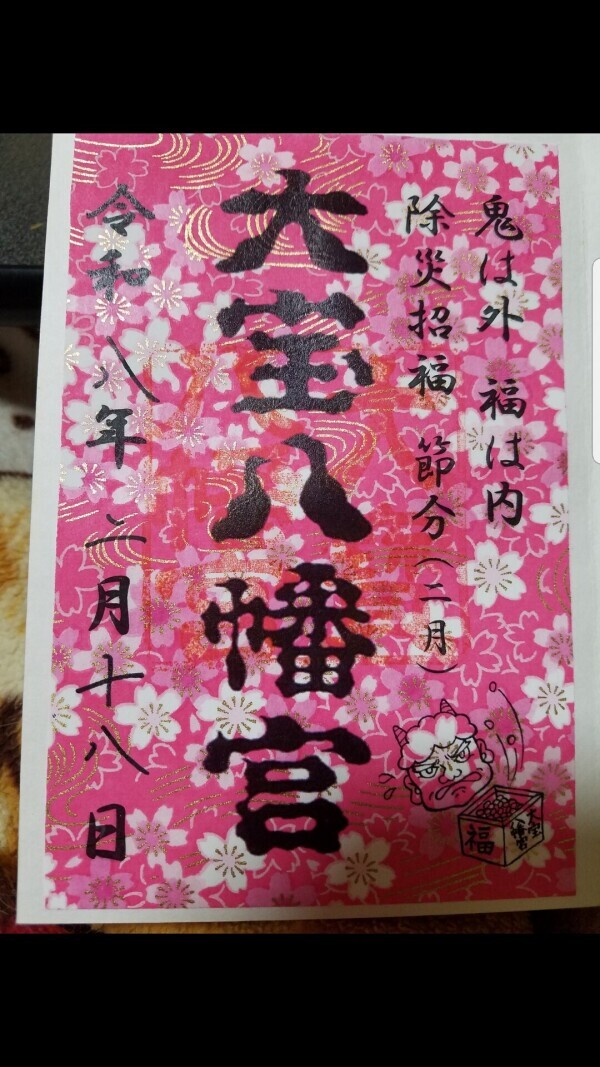 鬼は外 福は内
除災招福 節分(二月)
大宝八幡宮
令和八年二月十八日
福
大宝八幡宮